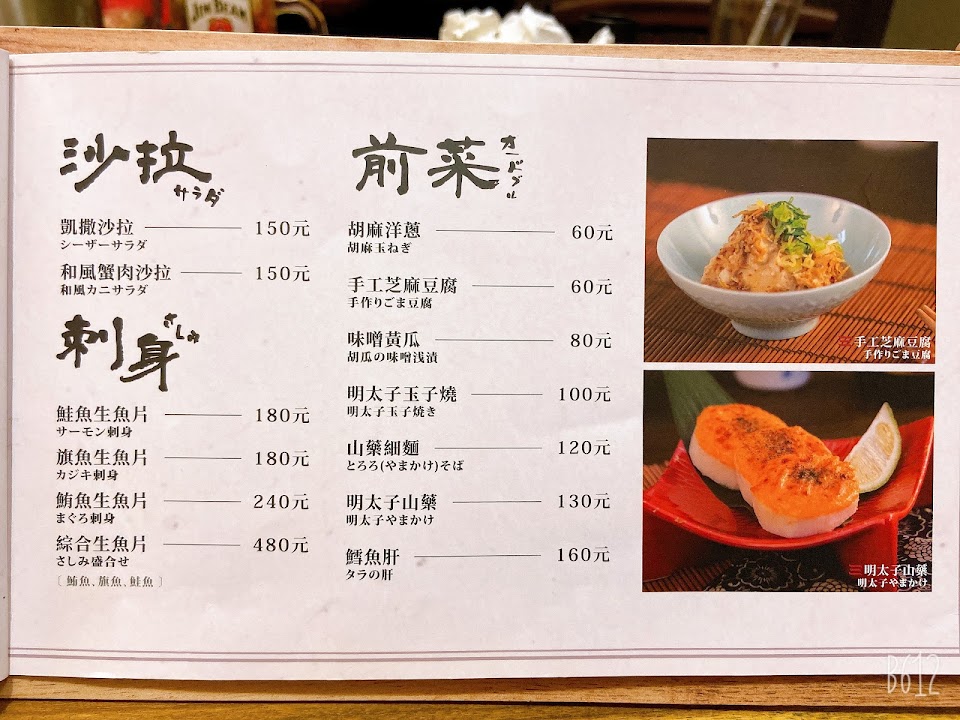 JIM BEAM
沙拉
サラダ
凱撒沙拉 150元
シーザーサラダ
和風蟹肉沙拉 150元
和風カニサラダ
刺身
さしみ
鮭魚生魚片 180元
サーモン刺身
旗魚生魚片 180元
カジキ刺身
鮪魚生魚片 240元
まぐろ刺身
綜合生魚片 480元
さしみ盛合せ
〔鮪魚、旗魚、鮭魚〕
前菜
オードブル
胡麻洋蔥 60元
胡麻玉ねぎ
手工芝麻豆腐 60元
手作りごま豆腐
味噌黃瓜 80元
胡瓜の味噌浅漬
明太子玉子燒 100元
明太子玉子焼き
山藥細麵 120元
とろろ(やまかけ)そば
明太子山藥 130元
明太子やまかけ
鱈魚肝 160元
タラの肝
手工芝麻豆腐
手作りごま豆腐
明太子山藥
明太子やまかけ
B612